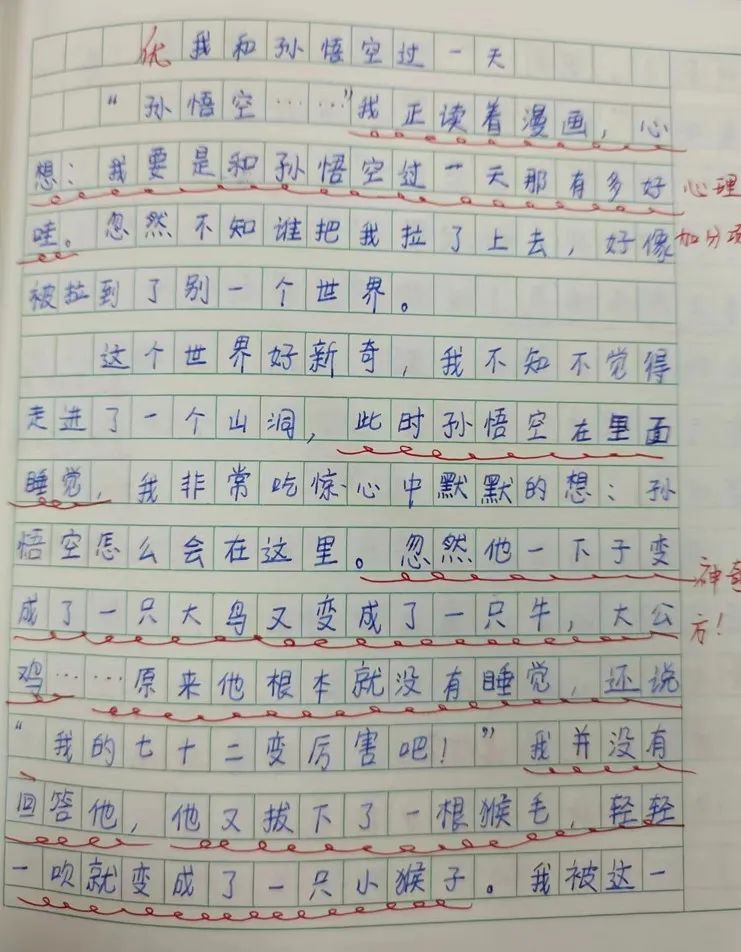 优 我和孙悟空过一天
“孙悟空……”我正读着漫画，心
想：我要是和孙悟空过一天那有多好 心理
哇。忽然不知谁把我拉了上去，好像 加分项
被拉到了别一个世界。
这个世界好新奇，我不知不觉得
走进了一个山洞，此时孙悟空在里面
睡觉，我非常吃惊心中默默的想：孙
悟空怎么会在这里。忽然他一下子变
成了一只大鸟又变成了一只牛，大公 神奇
鸡……原来他根本就没有睡觉，还说 方！
“我的七十二变厉害吧！”我并没有
回答他，他又拔下了一根猴毛，轻轻
一吹就变成了一只小猴子。我被这一